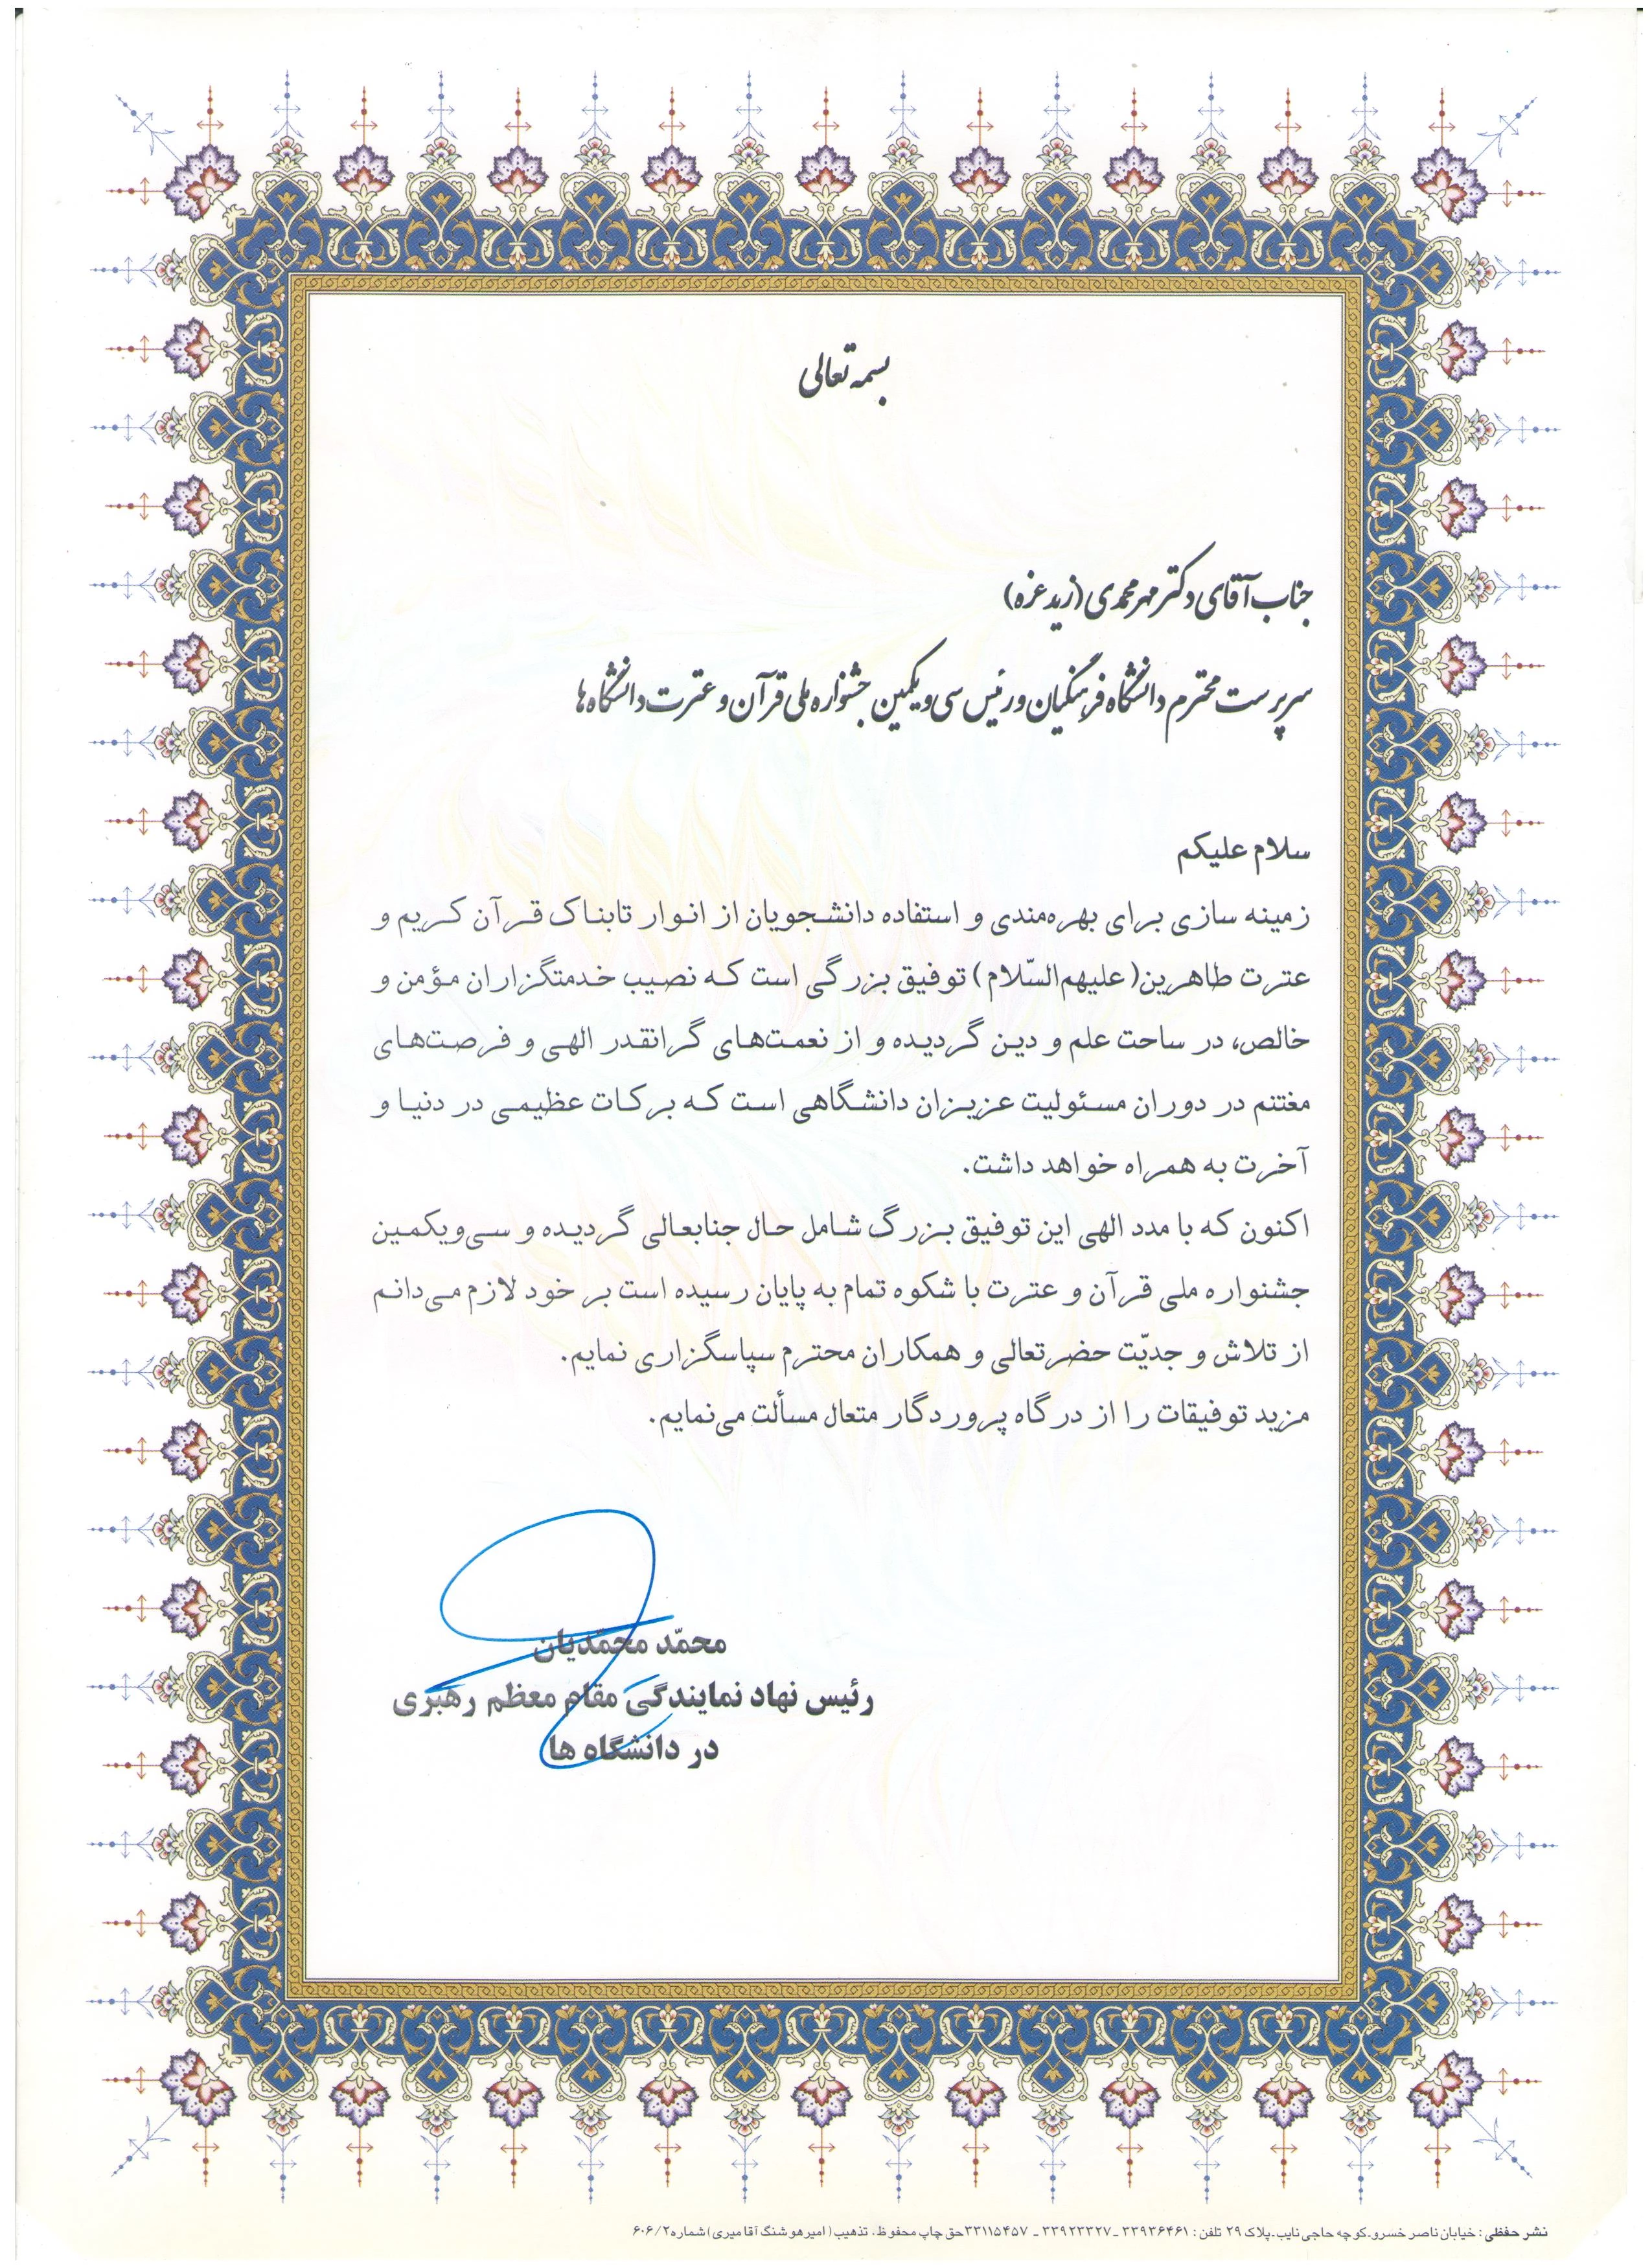 بسمه تعالی
جناب آقای دکتر مهرمحمدی (زید عزه)
سرپرست محترم دانشگاه فرهنگیان و رئیس سی و یکمین جشنواره ملی قرآن و عترت دانشگاه ها
سلام علیکم
زمینه سازی برای بهره‌مندی و استفاده دانشجویان از انوار تابناک قرآن کریم و
عترت طاهرین( علیهم‌السّلام ) توفیق بزرگی است که نصیب خدمتگزاران مؤمن و
خالص، در ساحت علم و دین گردیده و از نعمت‌های گرانقدر الهی و فرصت‌های
مغتنم در دوران مسئولیت عزیزان دانشگاهی است که برکات عظیمی در دنیا و
آخرت به همراه خواهد داشت.
اکنون که با مدد الهی این توفیق بزرگ شامل حال جنابعالی گردیده و سی‌و‌یکمین
جشنواره ملی قرآن و عترت با شکوه تمام به پایان رسیده است بر خود لازم می‌دانم
از تلاش و جدیّت حضرتعالی و همکاران محترم سپاسگزاری نمایم.
مزید توفیقات را از درگاه پروردگار متعال مسألت می‌نمایم.
محمّد محمّدیان
رئیس نهاد نمایندگی مقام معظم رهبری
در دانشگاه ها
نشر حفظی : خیابان ناصر خسرو.کوچه حاجی نایب.پلاک ۲۹ تلفن : ۳۳۹۳۶۴۶۱ ـ ۳۳۹۲۳۳۲۷ ـ ۳۳۱۱۵۴۵۷ حق چاپ محفوظ . تذهیب ( امیر هوشنگ آقا میری ) شماره ۶۰۶/۲